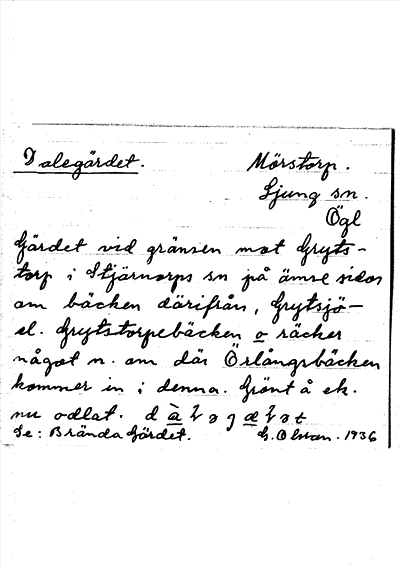 Dalegärdet.
Mörstorp.
Ljung sn.
Ögl
Gärdet vid gränsen mot Gryts-
torp i Stjärnorps sn på ömse sidor
om bäcken därifrån, Grytsjö-
el. Grytstorpebäcken o räcker
något n. om där Örlångsbäcken
kommer in i denna. Grönt å ek.
nu odlat.
Se: Brända Gärdet. G. Olson. 1936